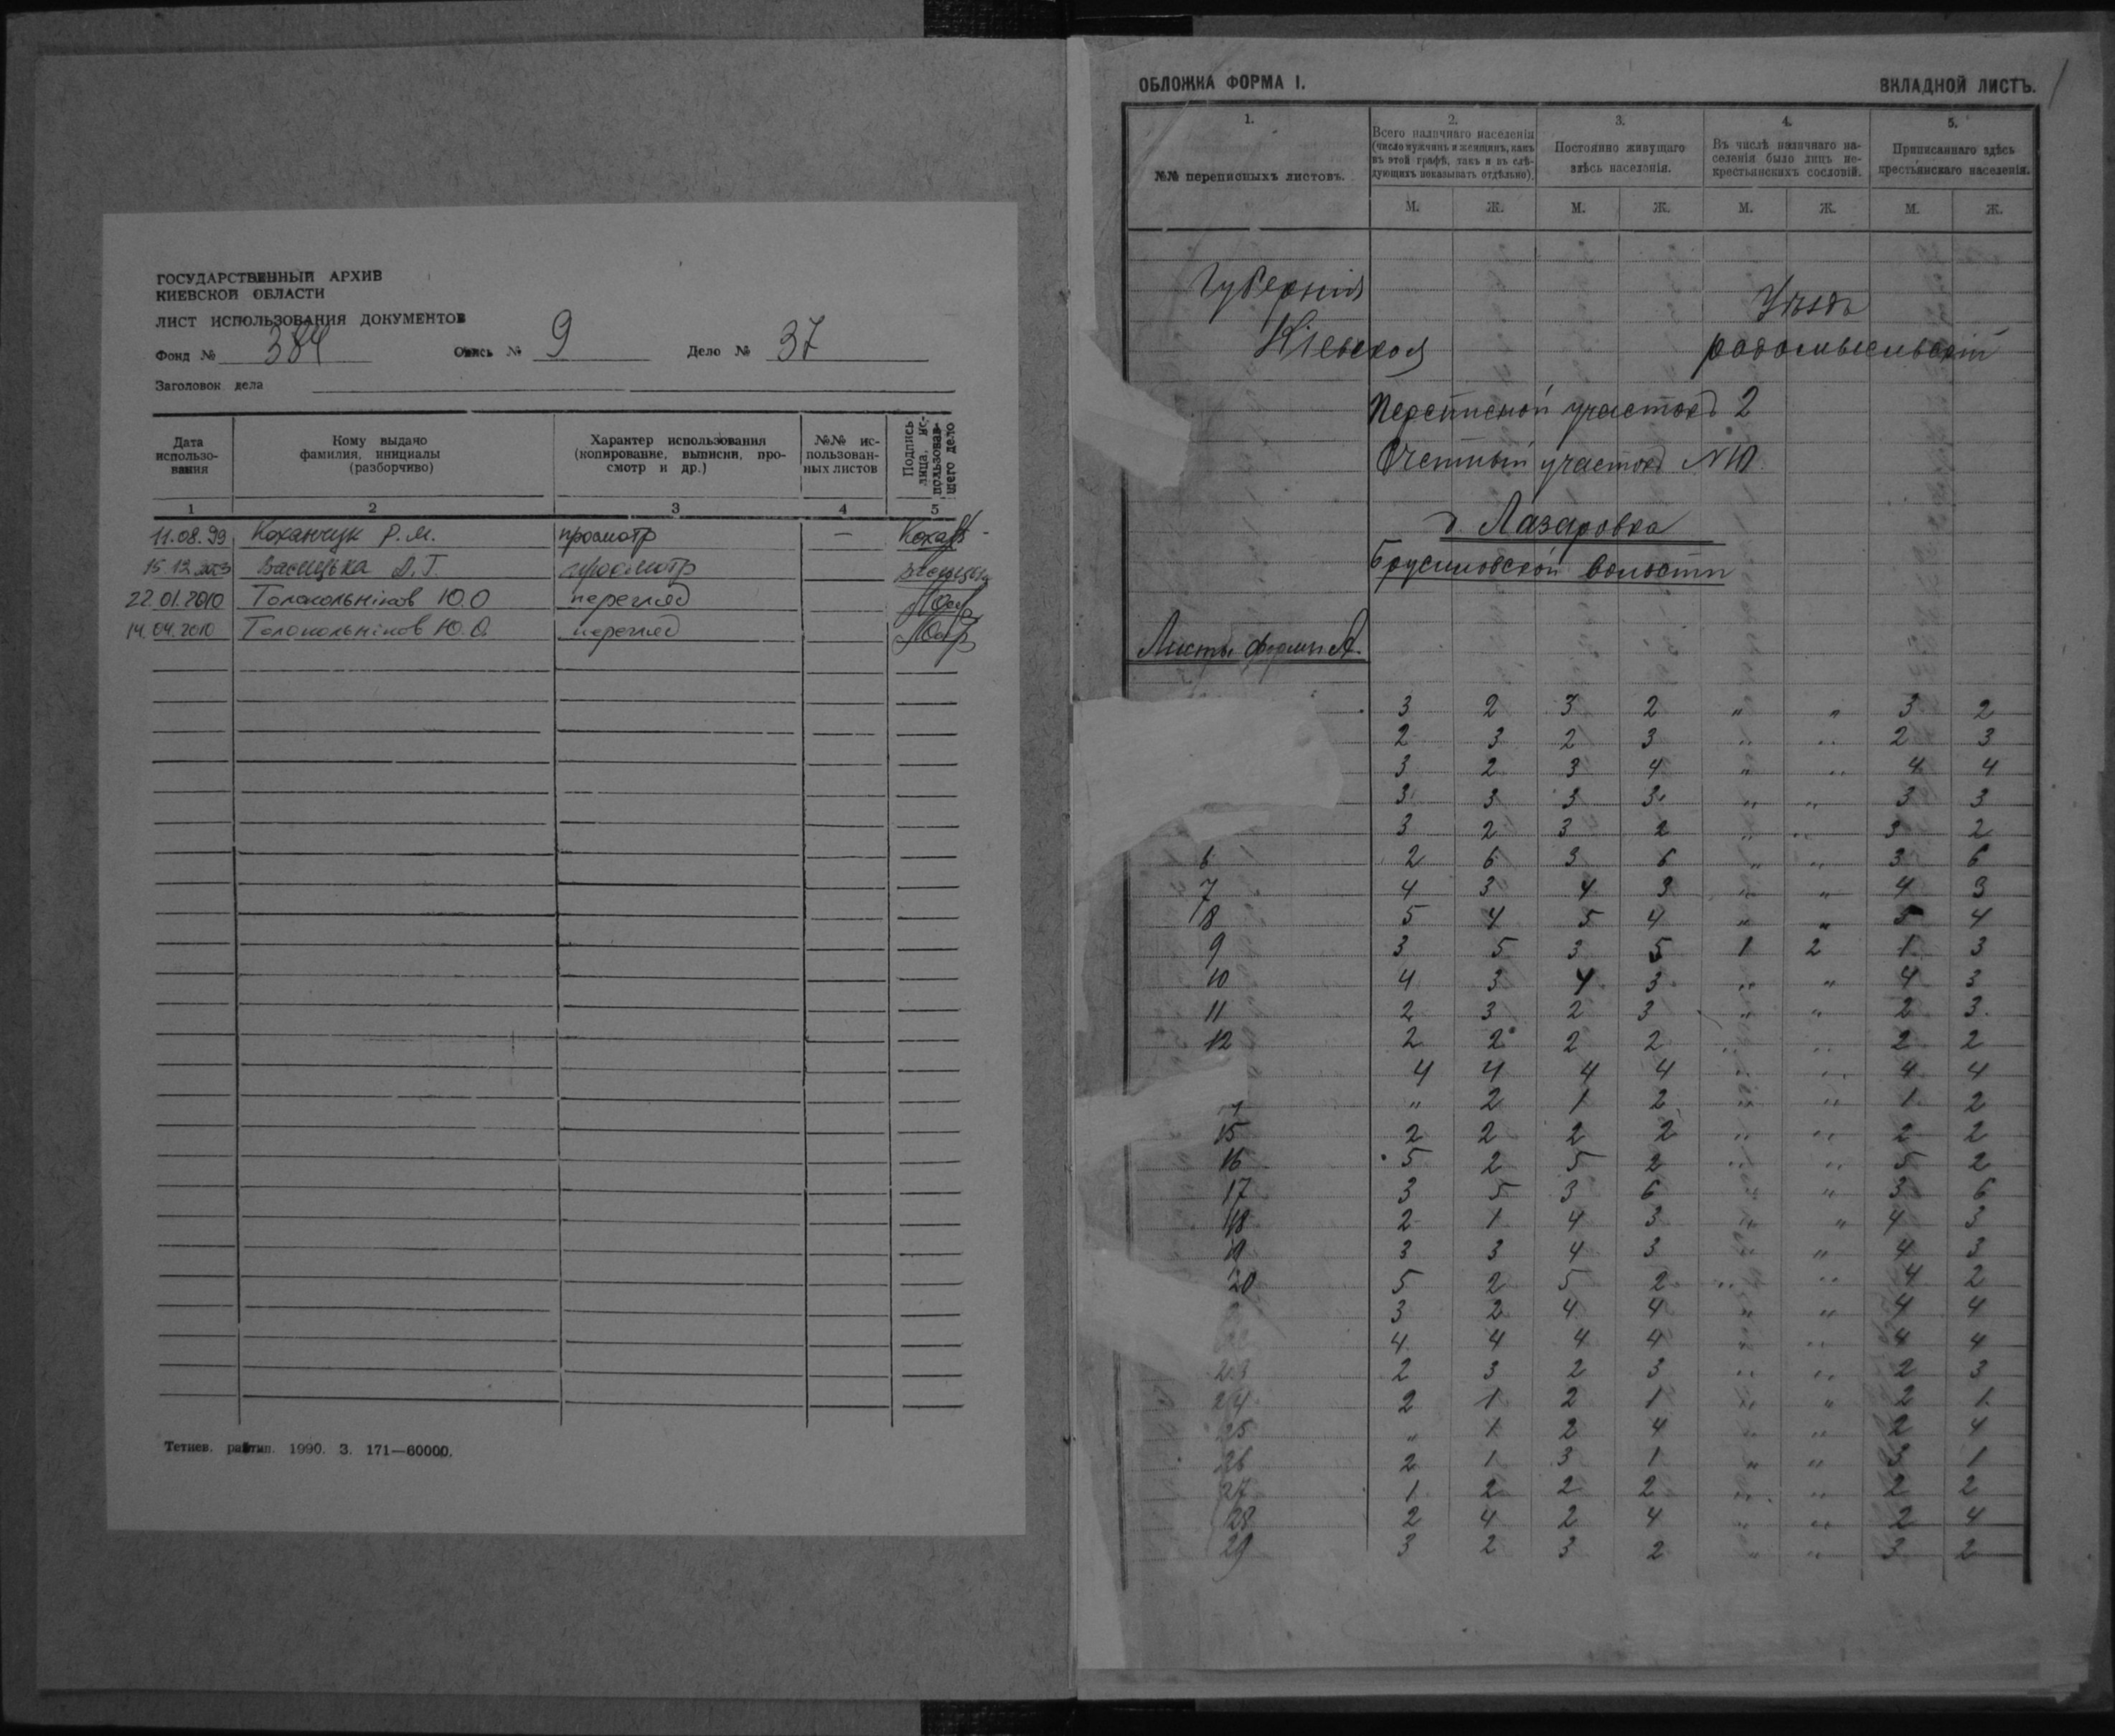 ГОСУДАРСТВЕННЫЙ АРХИВ
КИЕВСКОЙ ОБЛАСТИ
ЛИСТ ИСПОЛЬЗОВАНИЯ ДОКУМЕНТОВ
Фонд № 384 Опись № 9 Дело № 37
Заголовок дела
Дата использо-вания
Кому выдано фамилия, инициалы (разборчиво)
Характер использования (копирование, выписки, про-смотр и др.)
№№ ис-пользован-ных листов
Подпись лица, ис-пользовав-шего дело
1 2 3 4 5
11.08.99 Коханчук Р.М. просмотр —
15.12 Васицька Л.Т. просмотр
22.01.2010 Толокольніков Ю.О перегляд
14.04.2010 Толокольніков Ю.О. перегляд
Тетиев. райтип. 1990. З. 171—60000.
ОБЛОЖКА ФОРМА I. ВКЛАДНОЙ ЛИСТЪ.
1. №№ переписныхъ листовъ.
2. Всего наличнаго населенія (число мужчинъ и женщинъ, какъ въ этой графѣ, такъ и въ слѣ-дующихъ показывать отдѣльно).
3. Постоянно живущаго здѣсь населенія.
4. Въ числѣ наличнаго на-селенія было лицъ не-крестьянскихъ сословій.
5. Приписаннаго здѣсь крестьянскаго населенія.
М. Ж. М. Ж. М. Ж. М. Ж.
Губернія Уѣздъ
Кіевская радомысльскій
Переписной участокъ 2
Счетный участокъ N10
д Лазаровка
Брусиловской волости
Листы формы А.
3 2 3 2 " " 3 2
2 3 2 3 " " 2 3
3 2 3 4 " " 4 4
3 3 3 3 " " 3 3
3 2 3 2 " " 3 2
6 2 6 3 6 " " 3 6
7 4 3 4 3 " " 4 3
8 5 4 5 4 " " 5 4
9 3 5 3 5 1 2 1 3
10 4 3 4 3 " " 4 3
11 2 3 2 3 " " 2 3
12 2 2 2 2 " " 2 2
4 4 4 4 " " 4 4
" 2 1 2 " " 1 2
15 2 2 2 2 " " 2 2
16 5 2 5 2 " " 5 2
17 3 5 3 6 " " 3 6
18 2 1 4 3 " " 4 3
19 3 3 4 3 " " 4 3
20 5 2 5 2 " " 4 2
3 2 4 4 " " 4 4
22 4 4 4 4 " " 4 4
23 2 3 2 3 " " 2 3
24 2 1 2 1 " " 2 1
25 " 1 2 4 " " 2 4
26 2 1 3 1 " " 3 1
27 1 2 2 2 " " 2 2
28 2 4 2 4 " " 2 4
29 3 2 3 2 " " 3 2